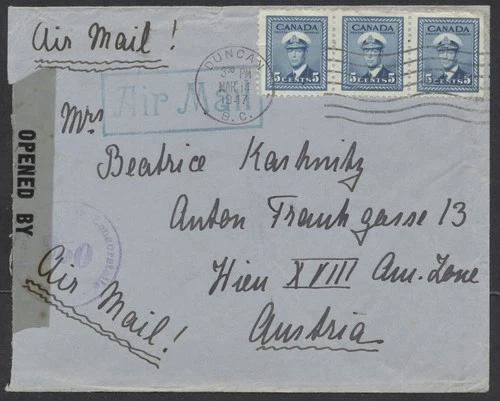 Air Mail!
CANADA CANADA CANADA
5 CENTS 5 5 CENTS 5 5 CENTS 5
DUNCAN
3 PM
MAR 14
1947
B.C.
Air Mail
Mrs
Beatrice Kashnitz
Anton Frank gasse 13
Wien XVIII Am. Zone
Austria
OPENED BY
Zensurstelle
Air Mail!